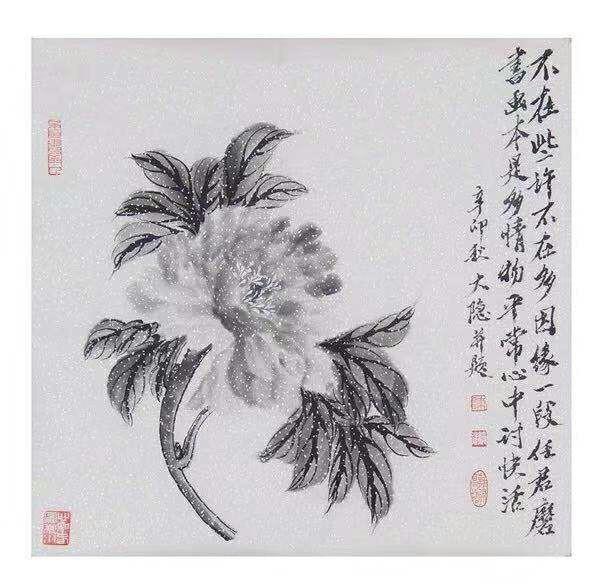 不在些许不在多因缘一段任君磨
书画本是多情物平常心中讨快活
辛卯秋大隐并题